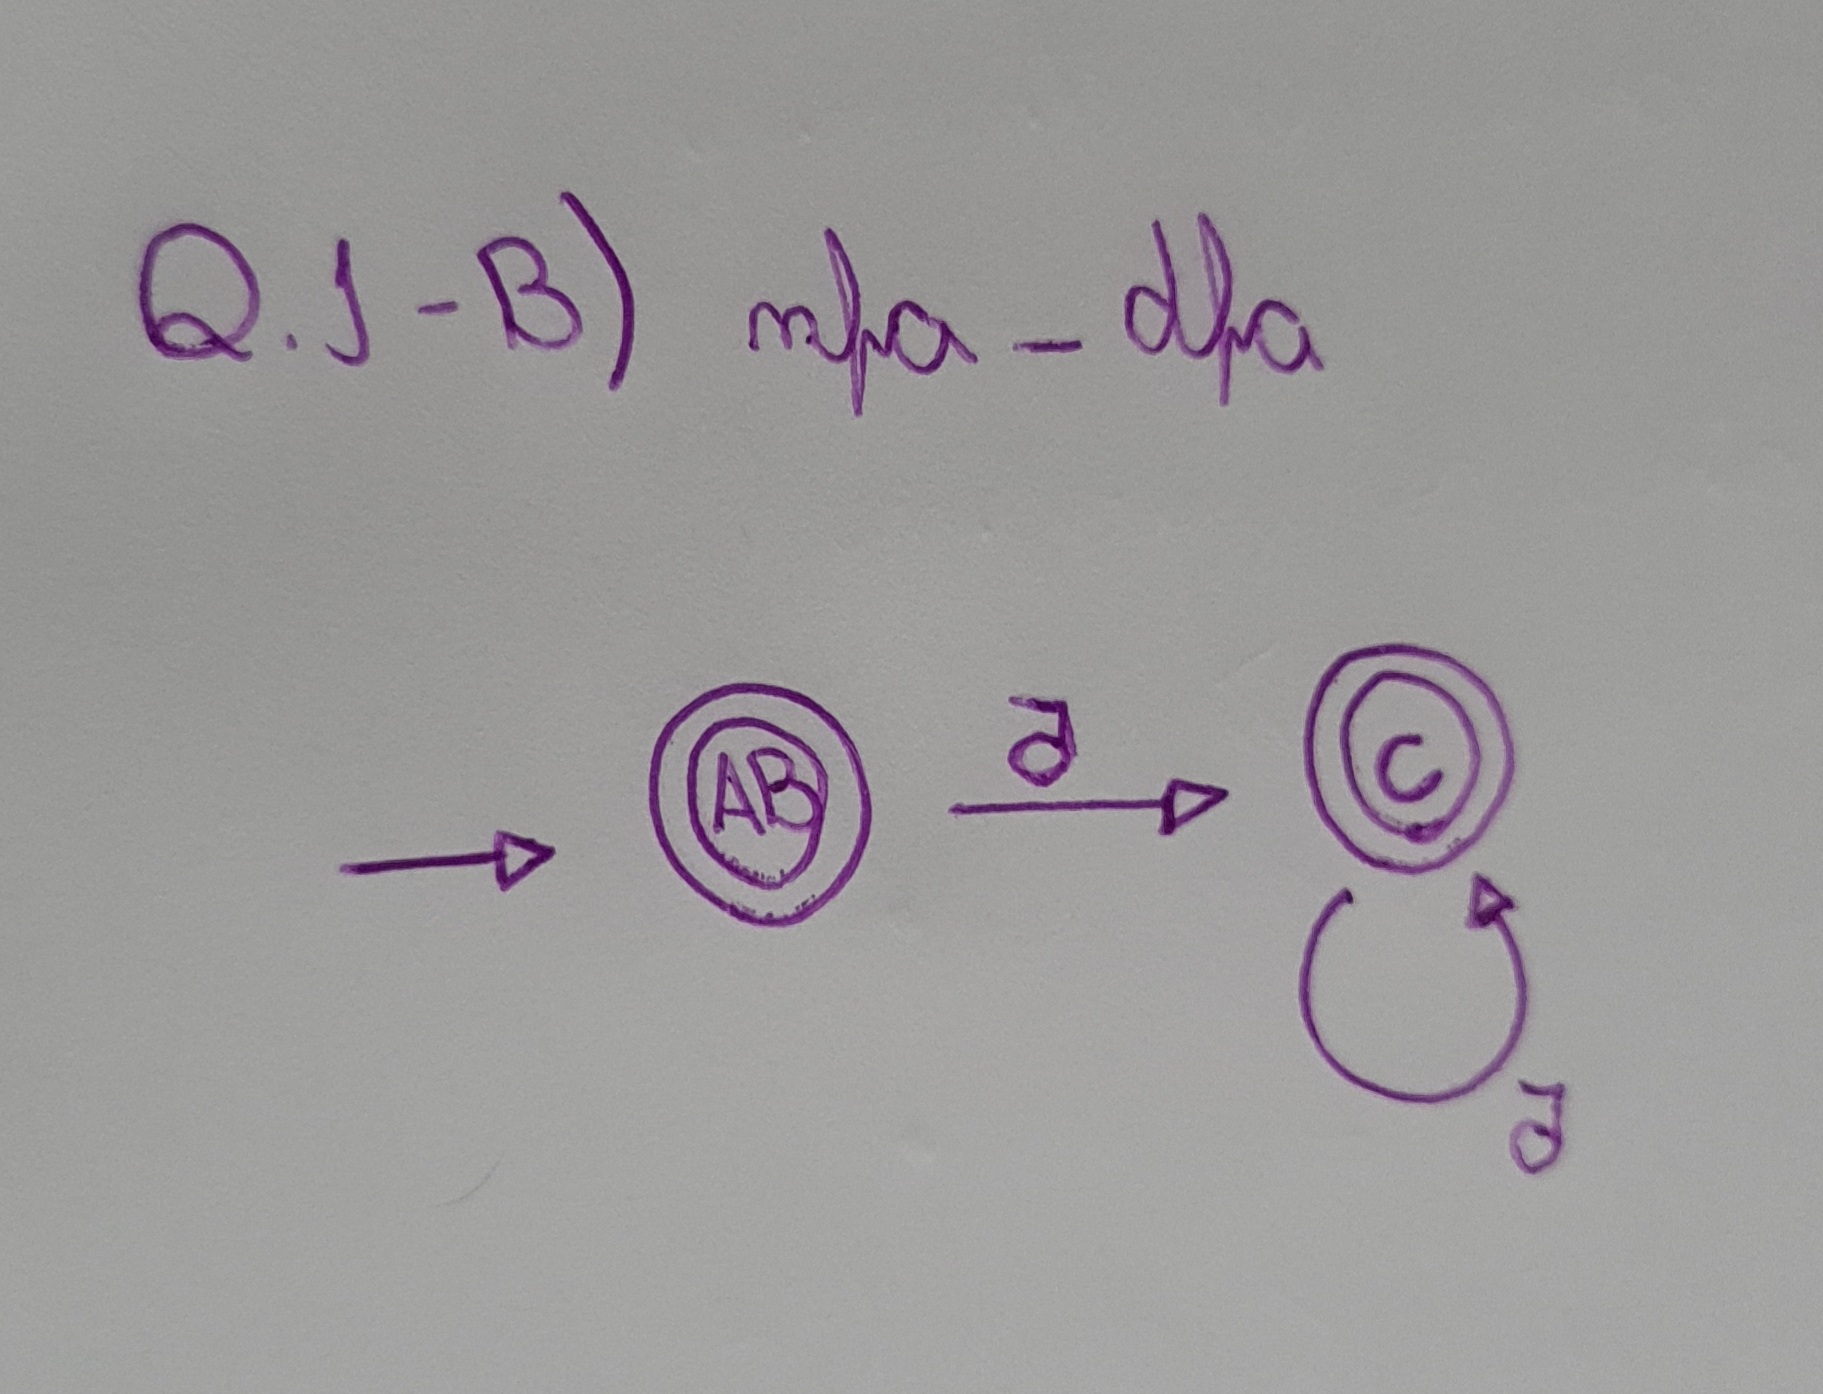 Q.1-B) nfa - dfa
a
AB
C
a